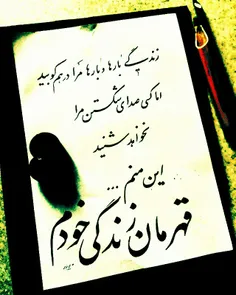 زندگی بارها و بارها مرا درهم کوبید
اما کسی صدای شکستن مرا
نخواهد شنید
این منم ...
قهرمان زندگی خودم